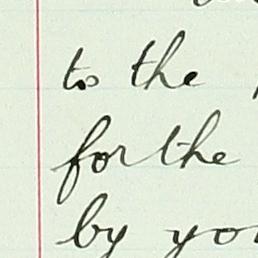 to the
for the
by yo